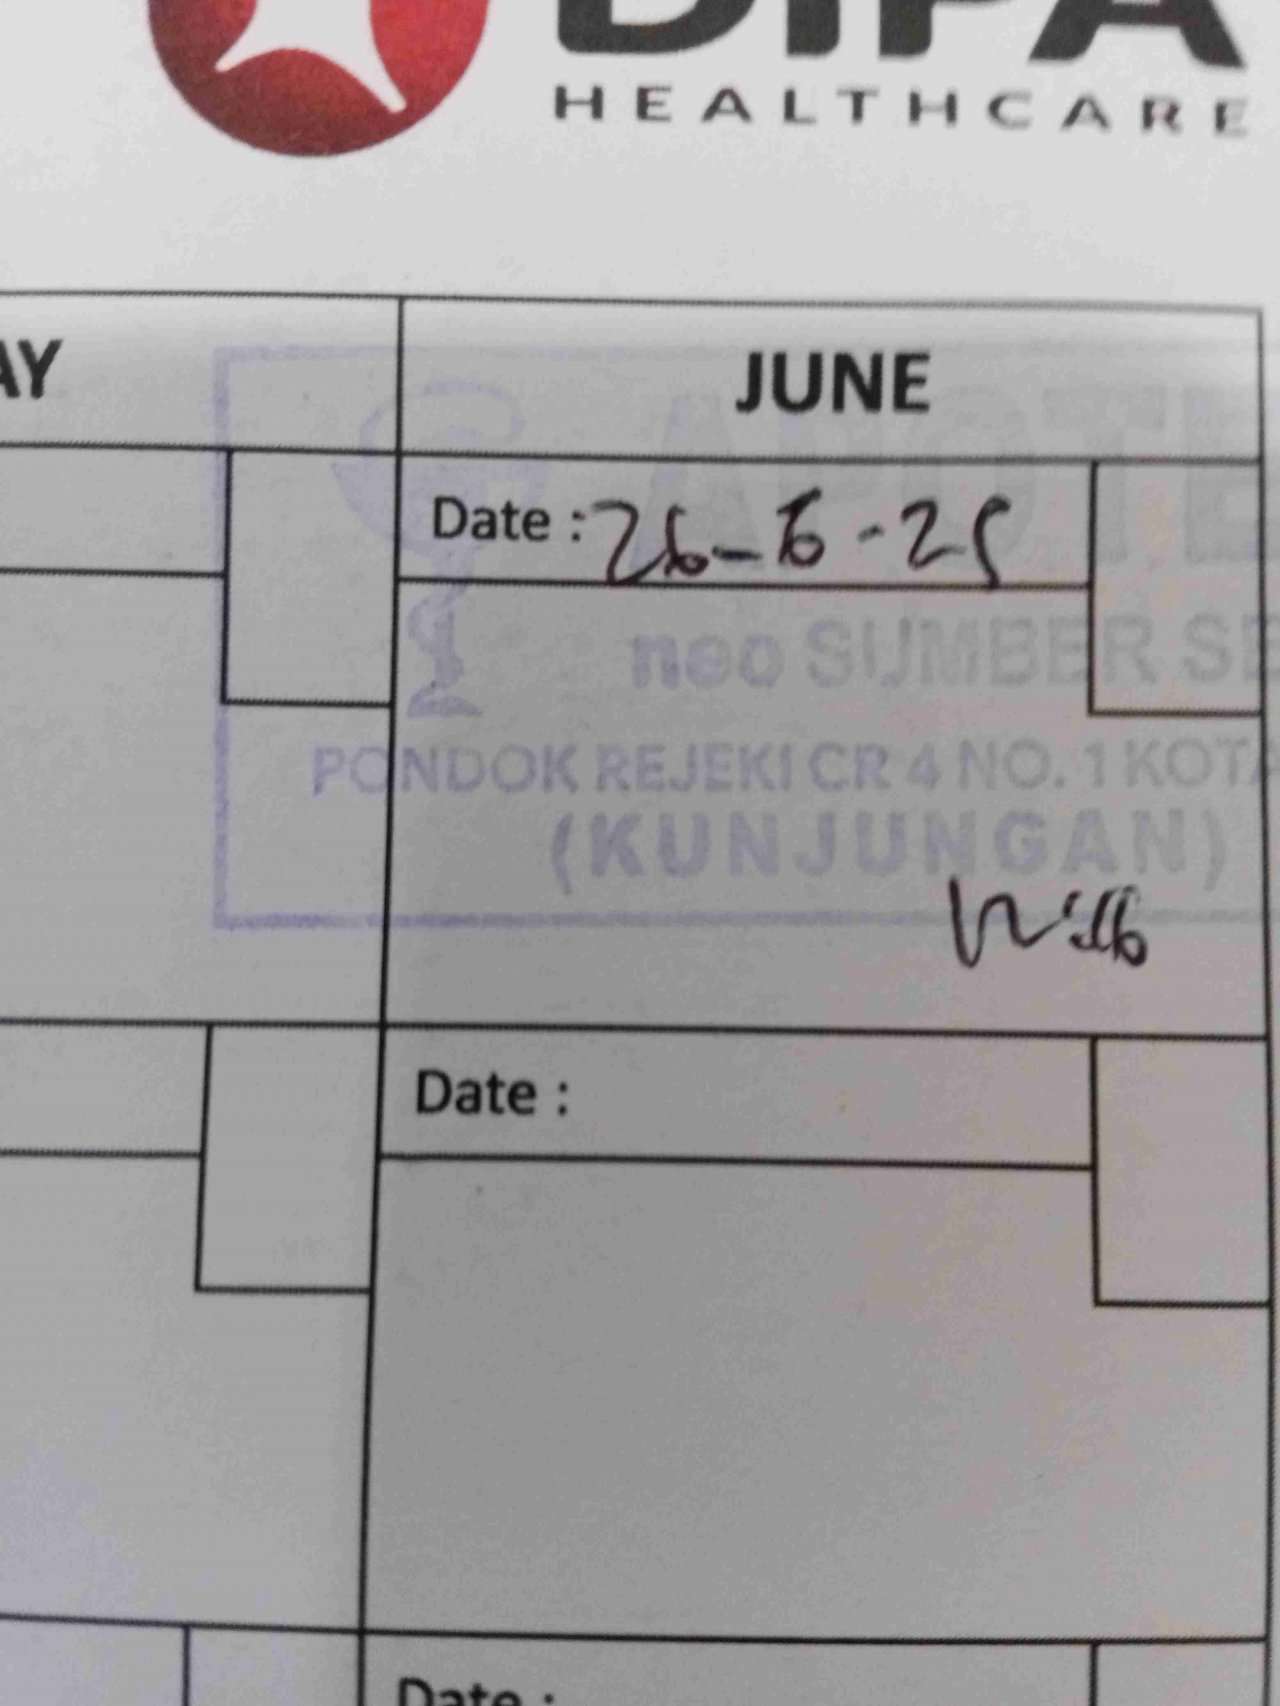 DIPA
HEALTHCARE
AY
JUNE
APOTE
Date : 26-6-25
neo SUMBER SE
PONDOK REJEKI CR 4 NO. 1 KOTA
(KUNJUNGAN)
Date :
Date :